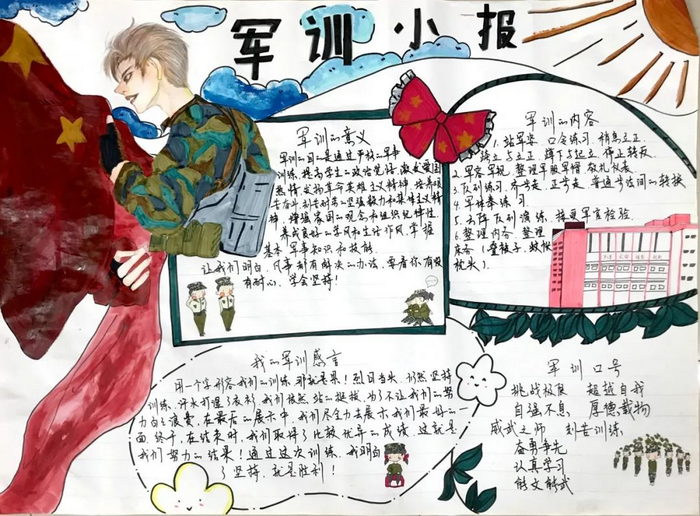 军训小报
军训的意义
军训的目的是通过严格的军事
训练提高学生的政治觉悟,激发爱国
热情,发扬革命英雄主义精神,培养艰
苦奋斗,刻苦耐劳的坚强毅力和集体主义精
神,增强国防观念和组织纪律性,
养成良好的学风和生活作风,掌握
基本军事知识和技能
让我们明白,凡事都有解决的办法,要看你有没
有耐心,学会坚持!
军训的内容
1. 站军姿 口令练习 稍息立正
跨立与立正 蹲下与起立 停止转换
2. 军容军规 整理军服军帽 敬礼 仪表
3. 队列练习 齐步走 正步走 普通步法间的转换
4. 军体拳练习
5. 方阵队列演练 接受军官检验
6. 整理内务 整理
床务(叠被子、
枕头)
我的军训感言
用一个字形容我们的训练,那就是累!烈日当头,仍然坚持
训练,汗水打湿了衣衫,我们依然站的挺拔,为了不让我们的努
力白白浪费,在最后的展示中,我们尽全力去展示我们最好的一
面,终于,在结束时,我们取得了比较优异的成绩,这就是
我们努力的结果!通过这次训练,我明白
了坚持就是胜利!
军训口号
挑战极限 超越自我
自强不息 厚德载物
威武之师 刻苦训练
奋勇争先
认真学习
能文能武